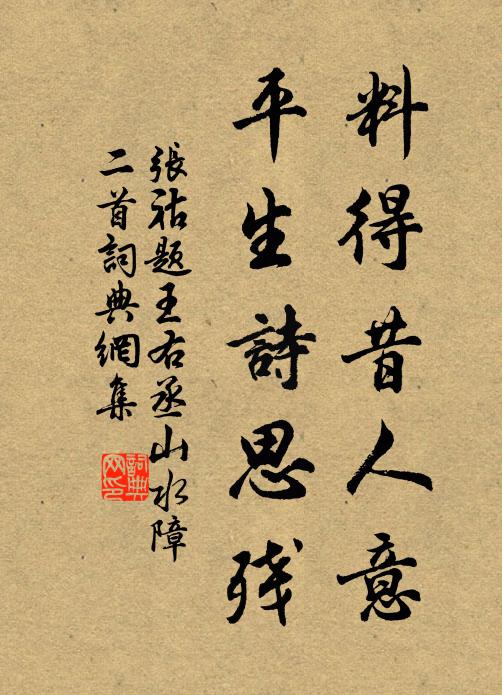 料得昔人意
平生詩思残
張祜題王右丞山水障
二首詞典網集
詞典
网印